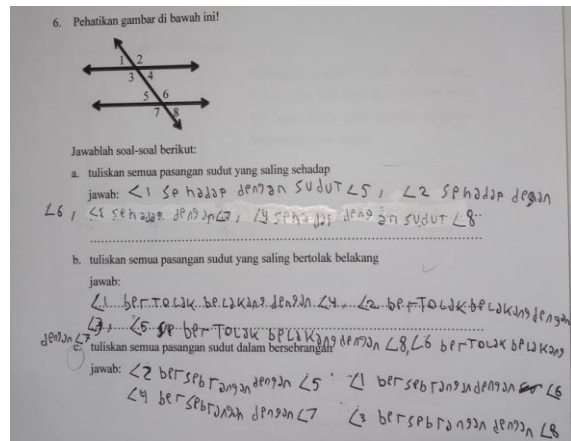 6. Pehatikan gambar di bawah ini!
1 2
3 4
5 6
7 8
Jawablah soal-soal berikut:
a. tuliskan semua pasangan sudut yang saling sehadap
jawab: ∠1 sehadap dengan sudut ∠5, ∠2 sehadap degan
∠6, sehadap dengan ∠7, ∠4 sehadap dengan sudut ∠8
b. tuliskan semua pasangan sudut yang saling bertolak belakang
jawab:
∠1 berTOLak belakang dengan ∠4 ∠2 berTOLak belakang dengan
∠3, ∠5 berTOLak beLakang dengan ∠8, ∠6 berTOLak beLakang
dengan ∠7
c. tuliskan semua pasangan sudut dalam bersebrangan
jawab: ∠2 bersebrangan dengan ∠5 ∠1 bersebrangan dengan ∠6
∠4 bersebrangan dengan ∠7 ∠3 bersebrangan dengan ∠8